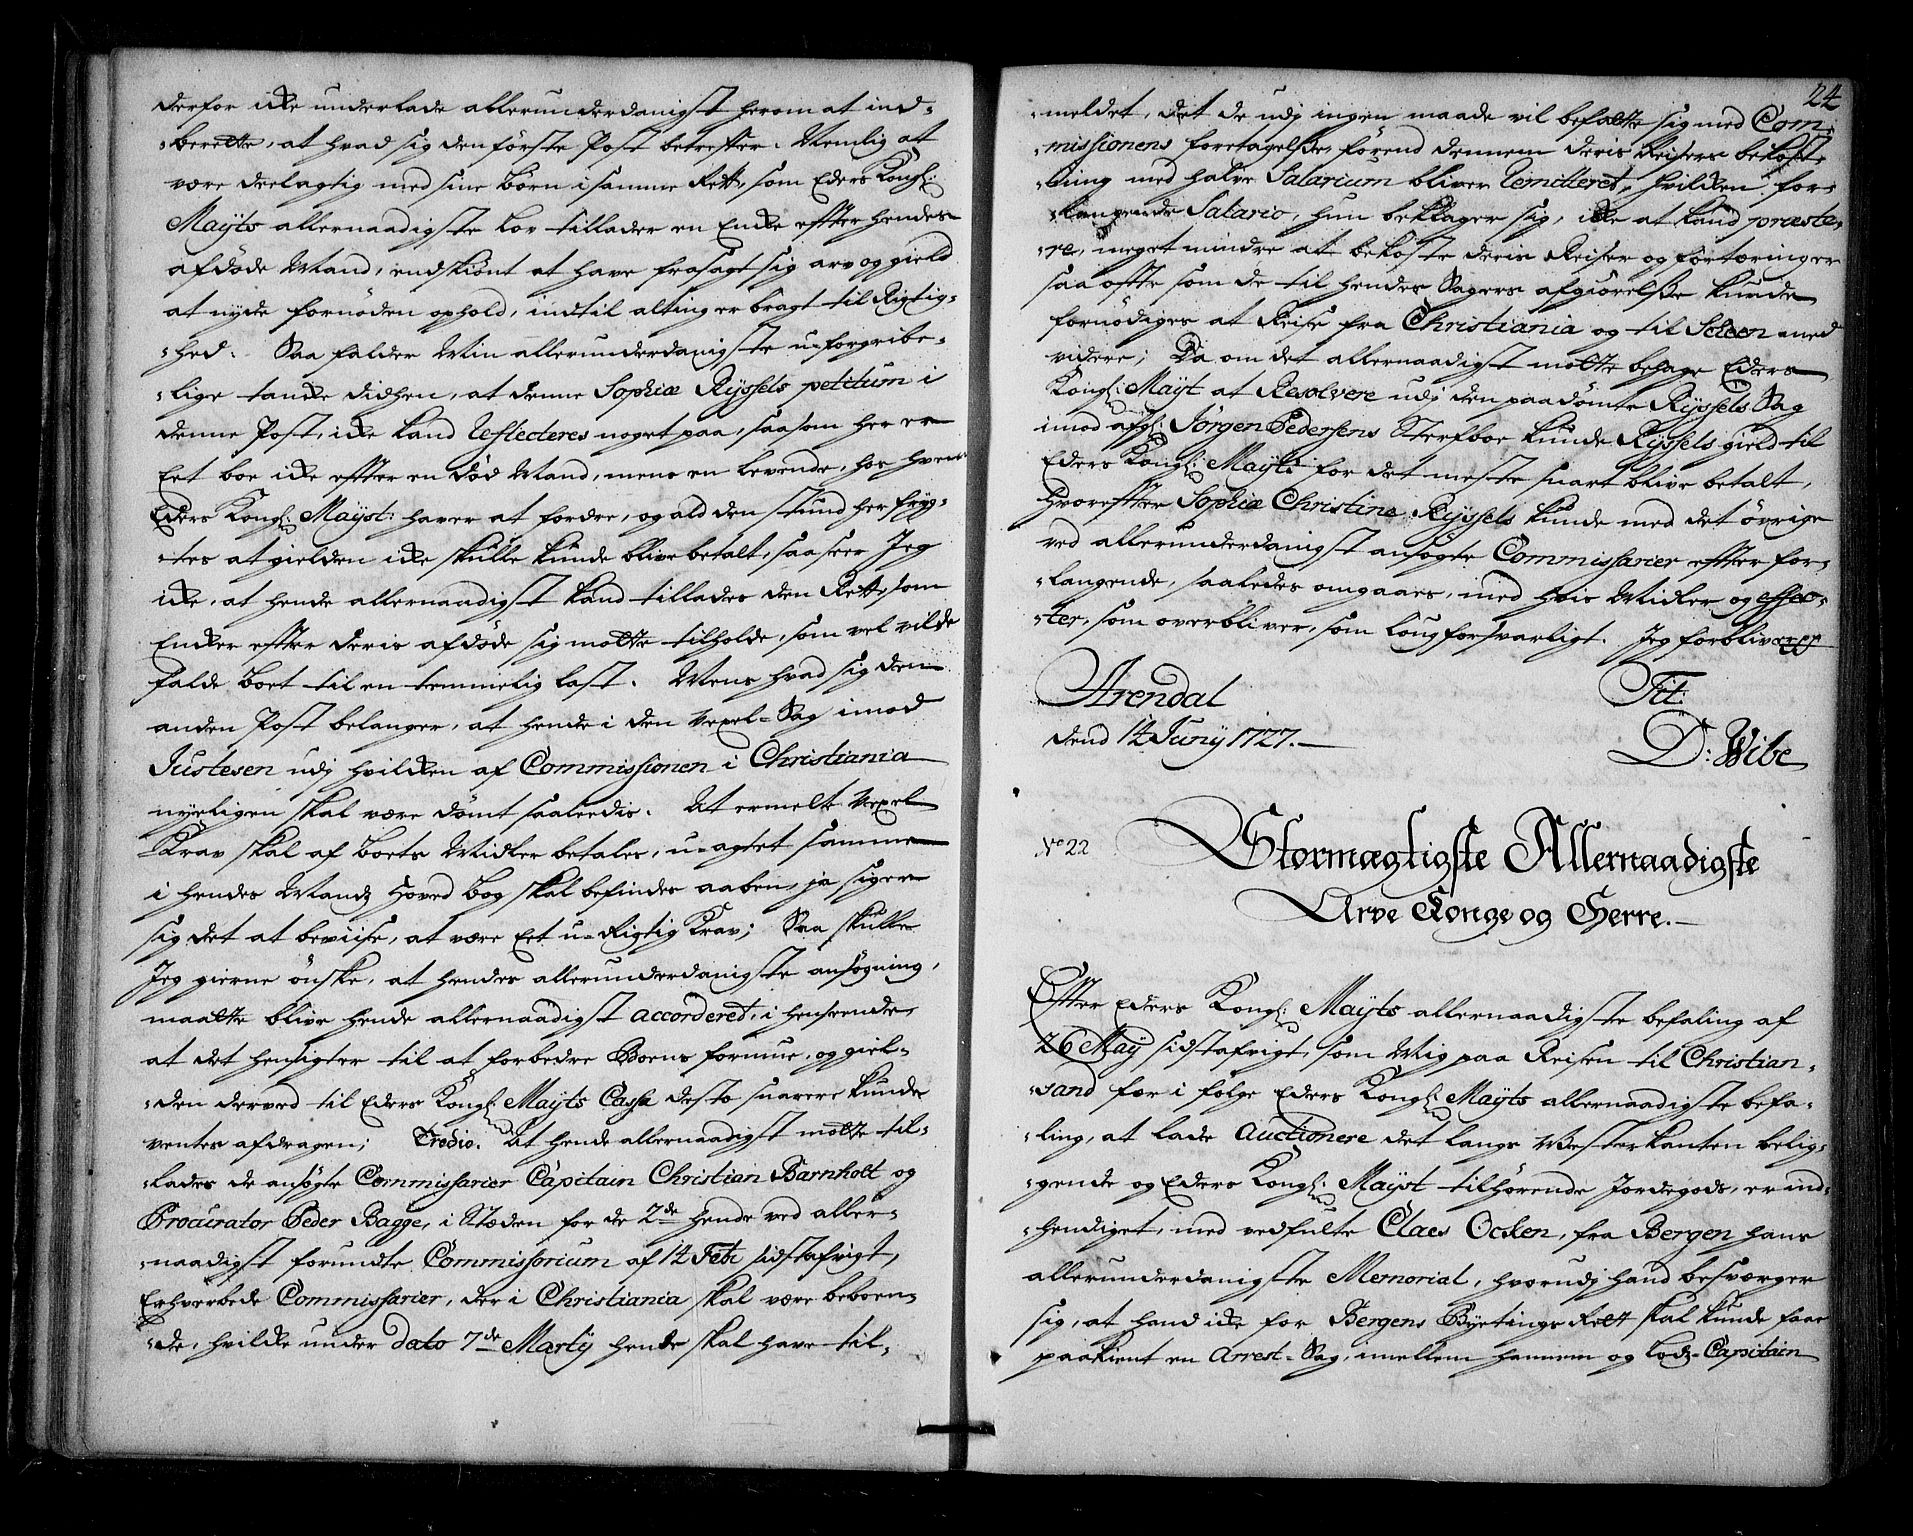 derfor icke underlade allerunderdanigst herom at ind-
-berette, at hvad sig den første Post betreffer. Nemlig at
være deelagtig med sine Børn i samme Rett, som Eders Kongl:
Mayts allernaadigste Lov tillader en Encke effter hendes
afdøde Mand, endskiønt at have frasagt sig arv og gield
at nyde fornøden ophold, indtil alting er bragt til Rigtig-
-hed. Saa falder Min allerunderdanigste u-forgribe-
-lige tancke didhen, at denne Sophiæ Ryssels petitum i
denne Post, icke kand reflecteres noget paa, saasom her er
Eet boe icke effter en død Mand, mens en levende, hos hvem
Eders Kongl: Mayst: haver at fordre, og ald den stund her fryg-
-tes at gielden icke skulle kunde blive betalt, saa seer Jeg
icke, at hende allernaadigst kand tillades den Rett, som
Encker effter deris afdøde sig motte tilholde, som vel vilde
falde Boet til en temmelig last. Mens hvad sig den
anden Post belanger, at hende i den Vexel-Sag imod
Justesen udj hvilcken af Commissionen i Christiania
nyeligen skal være dømt saaleedis. At ermelte Vexel
Krav skal af Boets Midler betales, u-agtet samme
i hendes Mands Hoved Bog skal befindes aaben, ja siger
sig det at beviise, at være Eet u-Rigtig Krav; Saa skulle
Jeg gierne ønske, at hendes allerunderdanigste ansøgning,
maatte blive hende allernaadigst accorderet, i henseende,
at det hensigter til at forbedre Boens formue, og giel-
-den derved til Eders Kongl: Mayts Cassa desto snarere kunde
ventes afdragen; Tredio. At hende allernaadigst motte til-
-lades de ansøgte Commissarier Capitain Christian Barnholt og
Procurator Peder Bagge, i Steden for de 2de hende ved aller-
-naadigst forundte Commissorium af 14 Febr sidstafvigt,
Erhverbede Commissarier, der i Christiania skal være boeen-
-de, hvilcke under dato 7de Marty hende skal have til-
24
-meldet, det de udj ingen maade vil befatte sig med Com-
-missionens foretagelse førend dennem deris Reisers bekost-
-ning med halve Salarium bliver remitteret, hvilcken for-
-langende Salario, hun beklager sig, icke at kand præste-
-re, meget mindre at bekoste deris Reiser og fortæringer
saa offte som de til hendes Sagers afgiørelse kunde
fornødiges at Reise fra Christiania og til Scheen med
videre; Da om det allernaadigst motte behage Eders
Kongl: Mayt at Resolvere udj den paadømte Ryssels Sag
imod afg: Jørgen Pedersens Sterfboe kunde Ryssels gield til
Eders Kongl: Mayts for det meste snart blive betalt,
hvoreffter Sophiæ Christine Ryssels kunde med det øvrige
ved allerunderdanigst ansøgte Commissarier effter for-
-langende, saaledes omgaaes, med hvis Midler og effec-
-ter, som overbliver, som lougforsvarligt. Jeg forbliver
Arendal Tit:
dend 14 Juny 1727. D: Wibe
No 22
Stormægtigste Allernaadigste
Arve Konge og Herre.
Effter Eders Kongl: Mayts allernaadigste befaling af
26 May sidstafvigt, som Mig paa Reisen til Christian-
-sand før i følge Eders Kongl: Mayts allernaadigste befa-
-ling, at lade Auctionere det langs Vesterkanten belig-
-gende og Eders Kongl: Mayst tilhørende Jordegods, er ind-
-hendiget, med vedfulte Claes Ocken, fra Bergen hans
allerunderdanigste Memorial, hvorudj hand besværger
sig, at hand icke for Bergens Byetings Rett skal kunde faae
paakient en Arrest-Sag, imellem hannem og Lods-Capitain